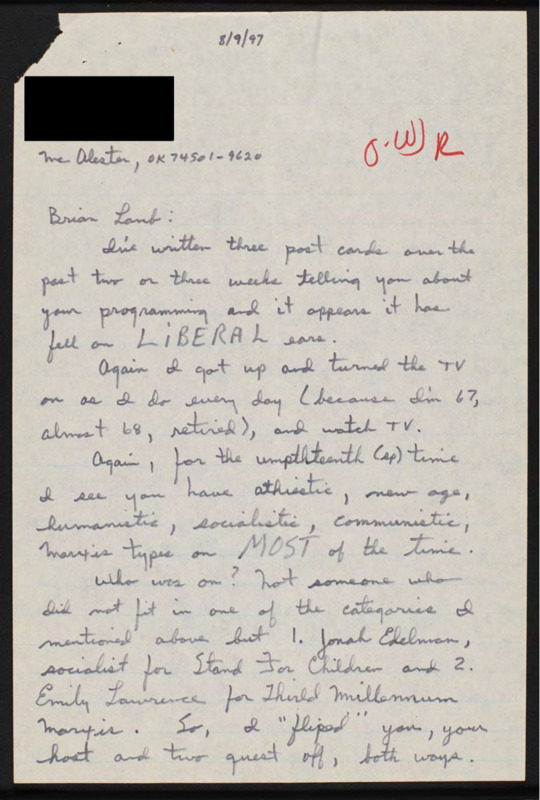 8/9/97
McAlester, OK 74501-9620
O.W) R
Brian Lamb:
I've written three post cards over the
past two or three weeks telling you about
your programming and it appears it has
fell on LIBERAL ears.
Again I got up and turned the TV
on as I do every day (because I'm 67,
almost 68, retired), and watch TV.
Again, for the umpthteenth (sp) time
I see you have athistic, new age,
humanistic, socialistic, communistic,
Marxis types on MOST of the time.
Who was on? Not someone who
did not fit in one of the categories I
mentioned above but 1. Jonah Edelman,
socialist for Stand For Children and 2.
Emily Lawrence for Thirld Millennum
Marxis. So, I "fliped" you, your
host and two guest off, both ways.